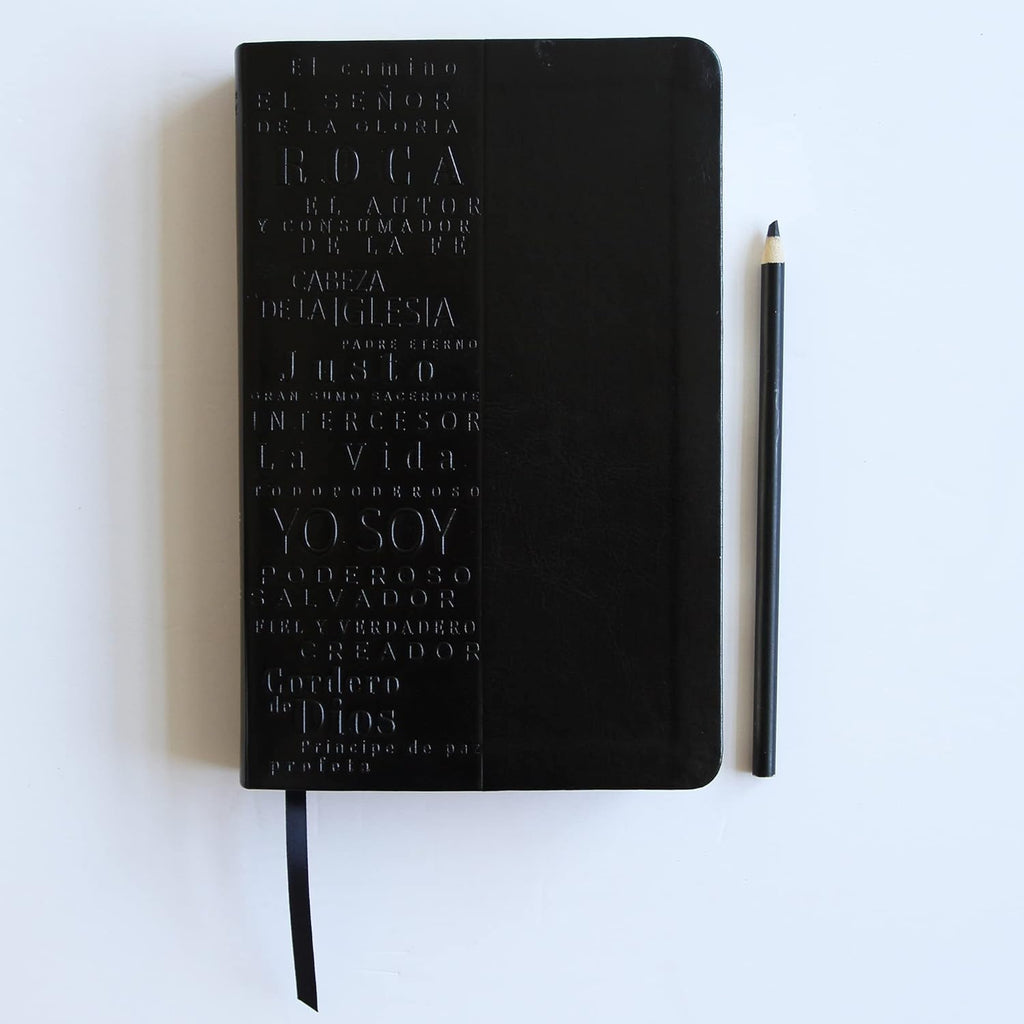 El camino
EL SEÑOR
DE LA GLORIA
ROCA
EL AUTOR
Y CONSUMADOR
DE LA FE
CABEZA
DE LA IGLESIA
PADRE ETERNO
Justo
GRAN SUMO SACERDOTE
INTERCESOR
La Vida
TODOPODEROSO
YO SOY
PODEROSO
SALVADOR
FIEL Y VERDADERO
CREADOR
Cordero
de Dios
Príncipe de paz
profeta